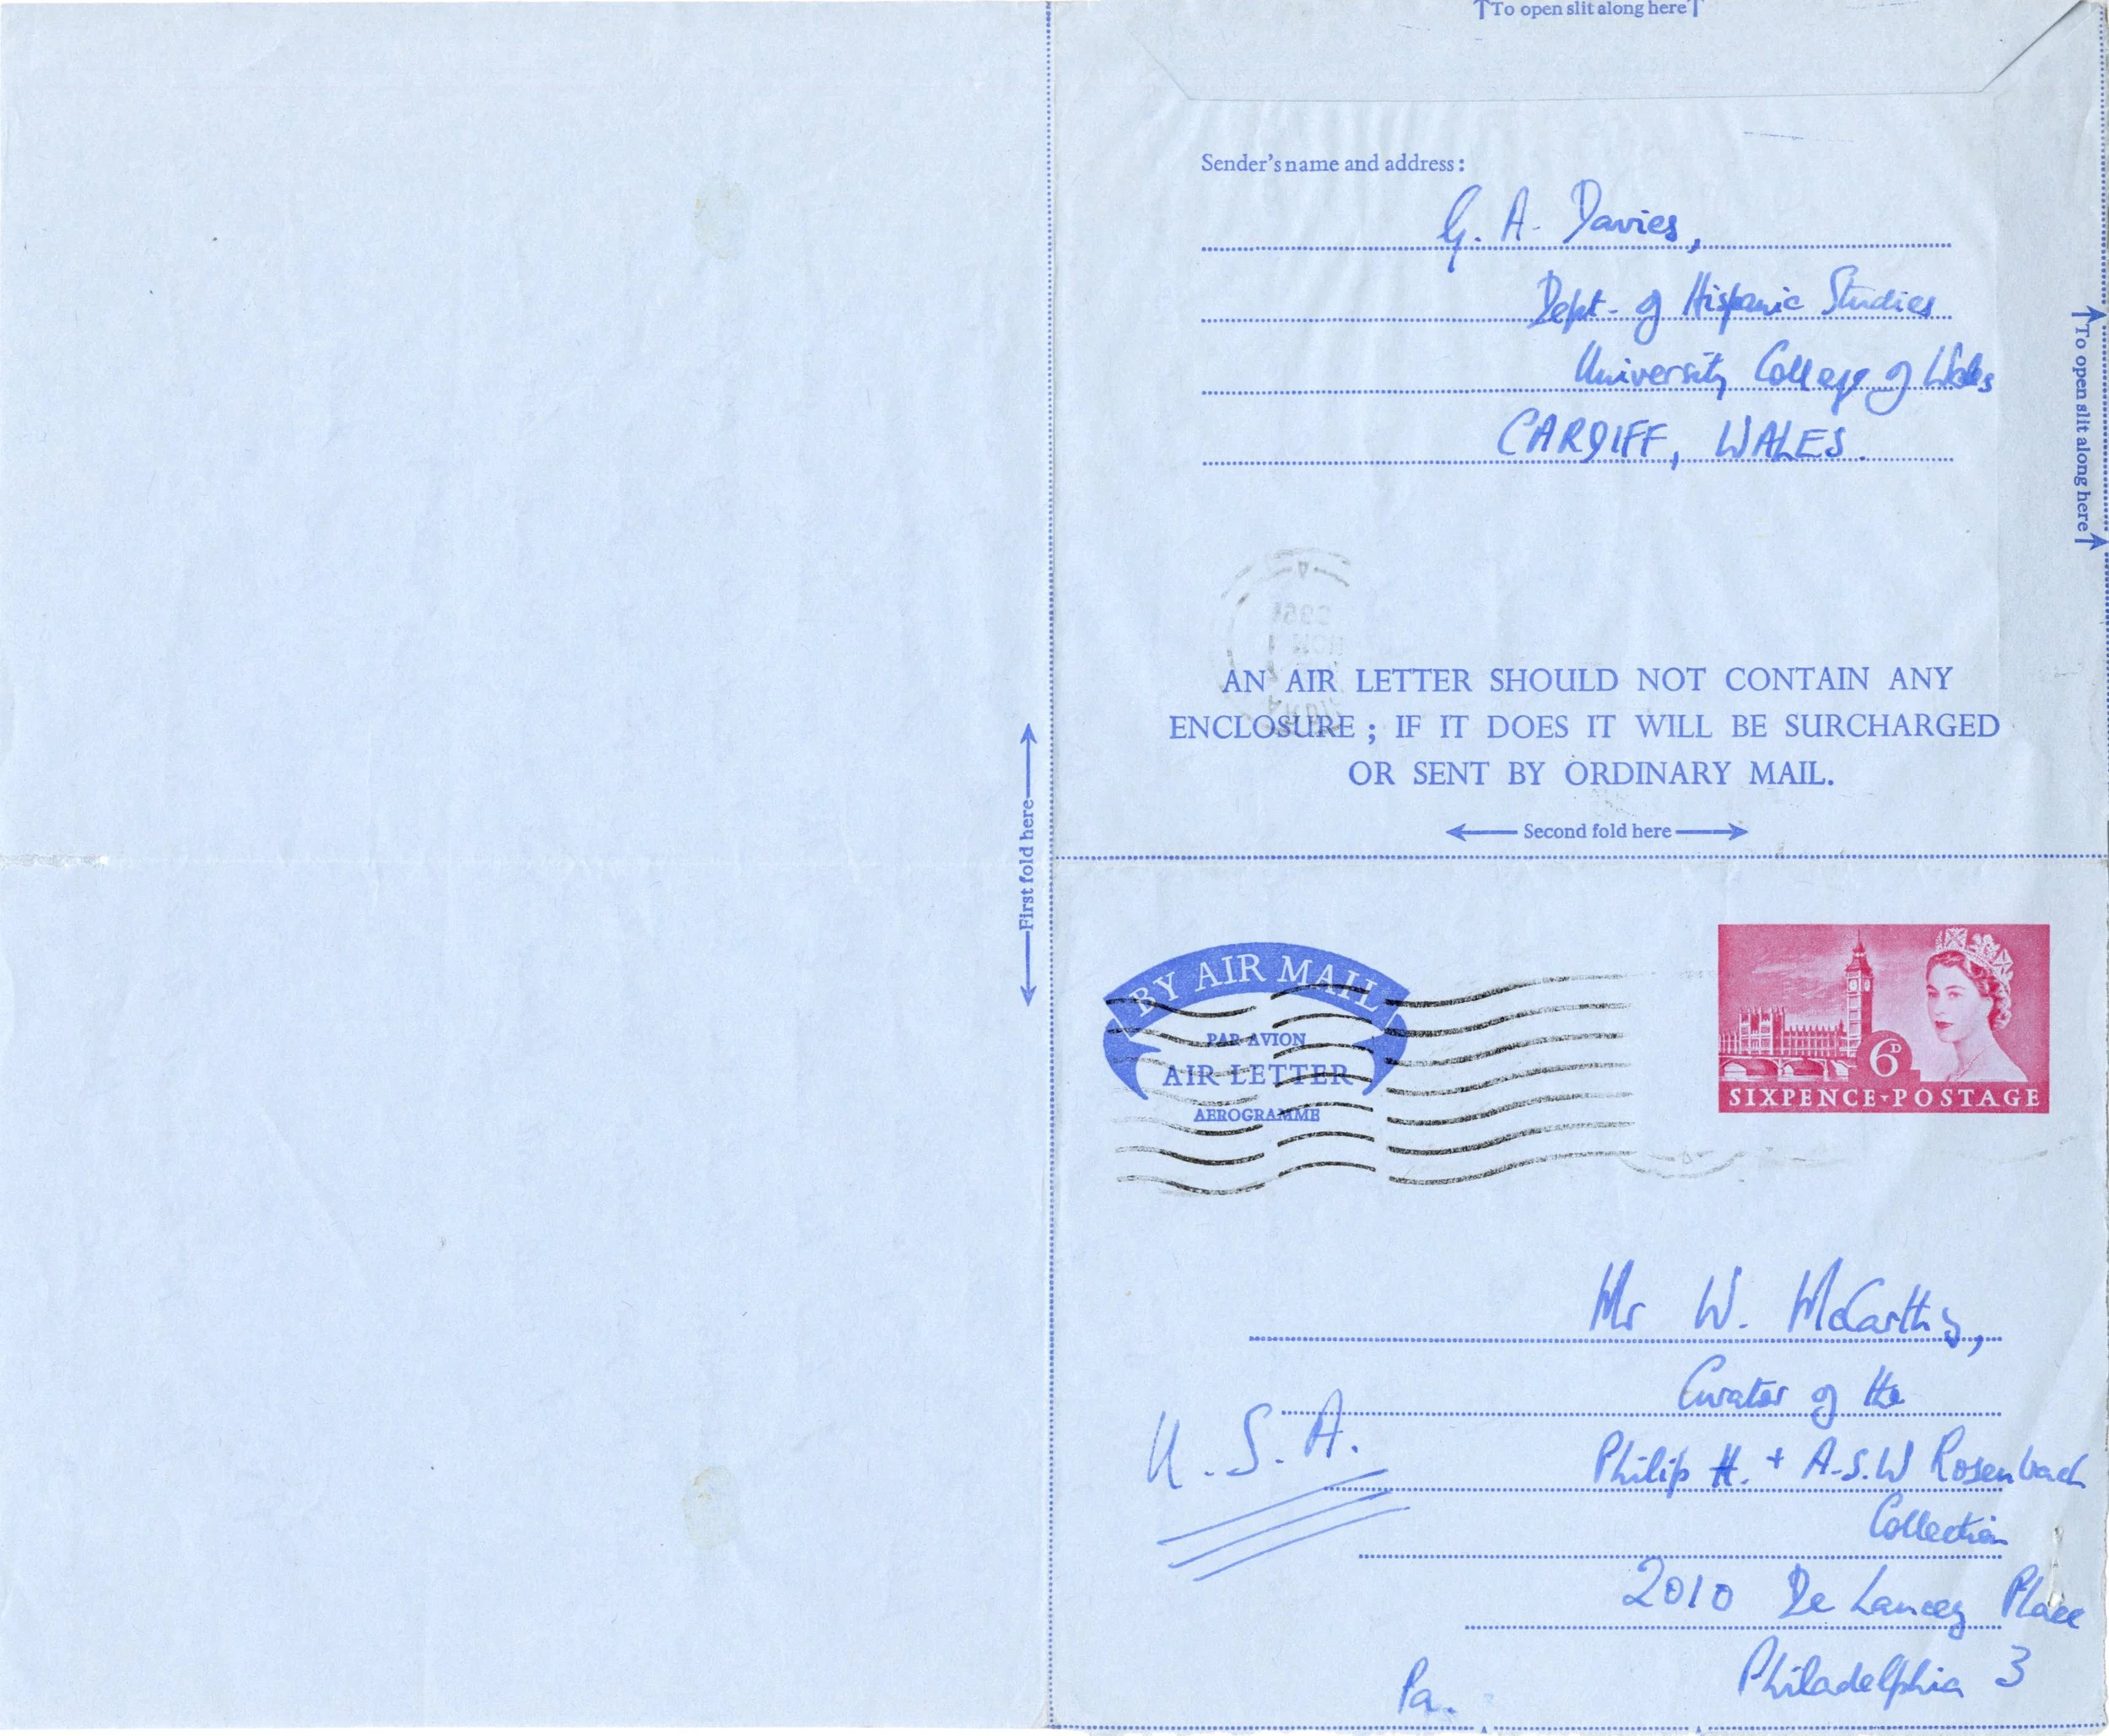 ↑To open slit along here↑
Sender's name and address:
G. A. Davies,
Dept. of Hispanic Studies
University College of Wales
CARDIFF, WALES.
↑To open slit along here↑
AN AIR LETTER SHOULD NOT CONTAIN ANY
ENCLOSURE ; IF IT DOES IT WILL BE SURCHARGED
OR SENT BY ORDINARY MAIL.
←Second fold here→
←First fold here→
BY AIR MAIL
PAR AVION
AIR LETTER
AEROGRAMME
6D
SIXPENCE·POSTAGE
Mr W. McCarthy,
Curator of the
Philip H. + A.S.W Rosenbach
Collection
2010 De Lancey Place
Philadelphia 3
Pa.
U.S.A.